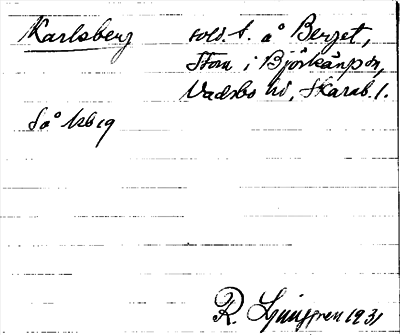 Karlsberg sold. t. å Berget,
Stom i Björkängsn,
Vadsbo hd, Skarab. l.
Så kbg
R. Ljunggren 1931